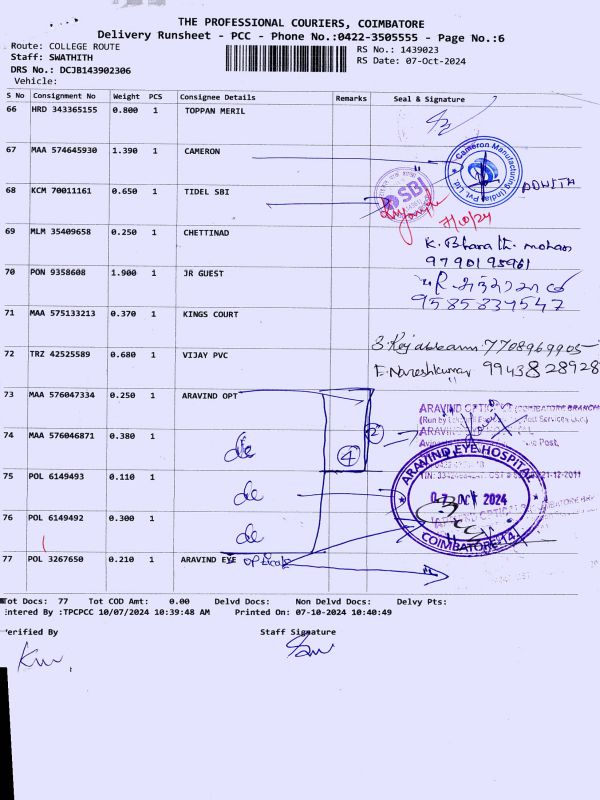 THE PROFESSIONAL COURIERS, COIMBATORE
Delivery Runsheet - PCC - Phone No.:0422-3505555 - Page No.:6
Route: COLLEGE ROUTE
Staff: SWATHITH
DRS No.: DCJB143902306
Vehicle:
RS No.: 1439023
RS Date: 07-Oct-2024
S No Consignment No Weight PCS Consignee Details Remarks Seal & Signature
66 HRD 343365155 0.800 1 TOPPAN MERIL
67 MAA 574645930 1.390 1 CAMERON
Cameron Manufacturing (India) Pvt. Ltd.
68 KCM 70011161 0.650 1 TIDEL SBI
SBI
7/10/24
69 MLM 35409658 0.250 1 CHETTINAD
K. Bharath. mohan
9790195961
70 PON 9358608 1.900 1 JR GUEST
9585834547
71 MAA 575133213 0.370 1 KINGS COURT
7708969905
72 TRZ 42525589 0.680 1 VIJAY PVC
E. Nareshkumar 9943828928
73 MAA 576047334 0.250 1 ARAVIND OPT
74 MAA 576046871 0.380 1
do
4
2
75 POL 6149493 0.110 1
do
ARAVIND EYE HOSPITAL
07 OCT 2024
COIMBATORE-14
76 POL 6149492 0.300 1
do
77 POL 3267650 0.210 1 ARAVIND EYE opticals
Tot Docs: 77 Tot COD Amt: 0.00 Delvd Docs: Non Delvd Docs: Delvy Pts:
Entered By :TPCPCC 10/07/2024 10:39:48 AM Printed On: 07-10-2024 10:40:49
Verified By Staff Signature